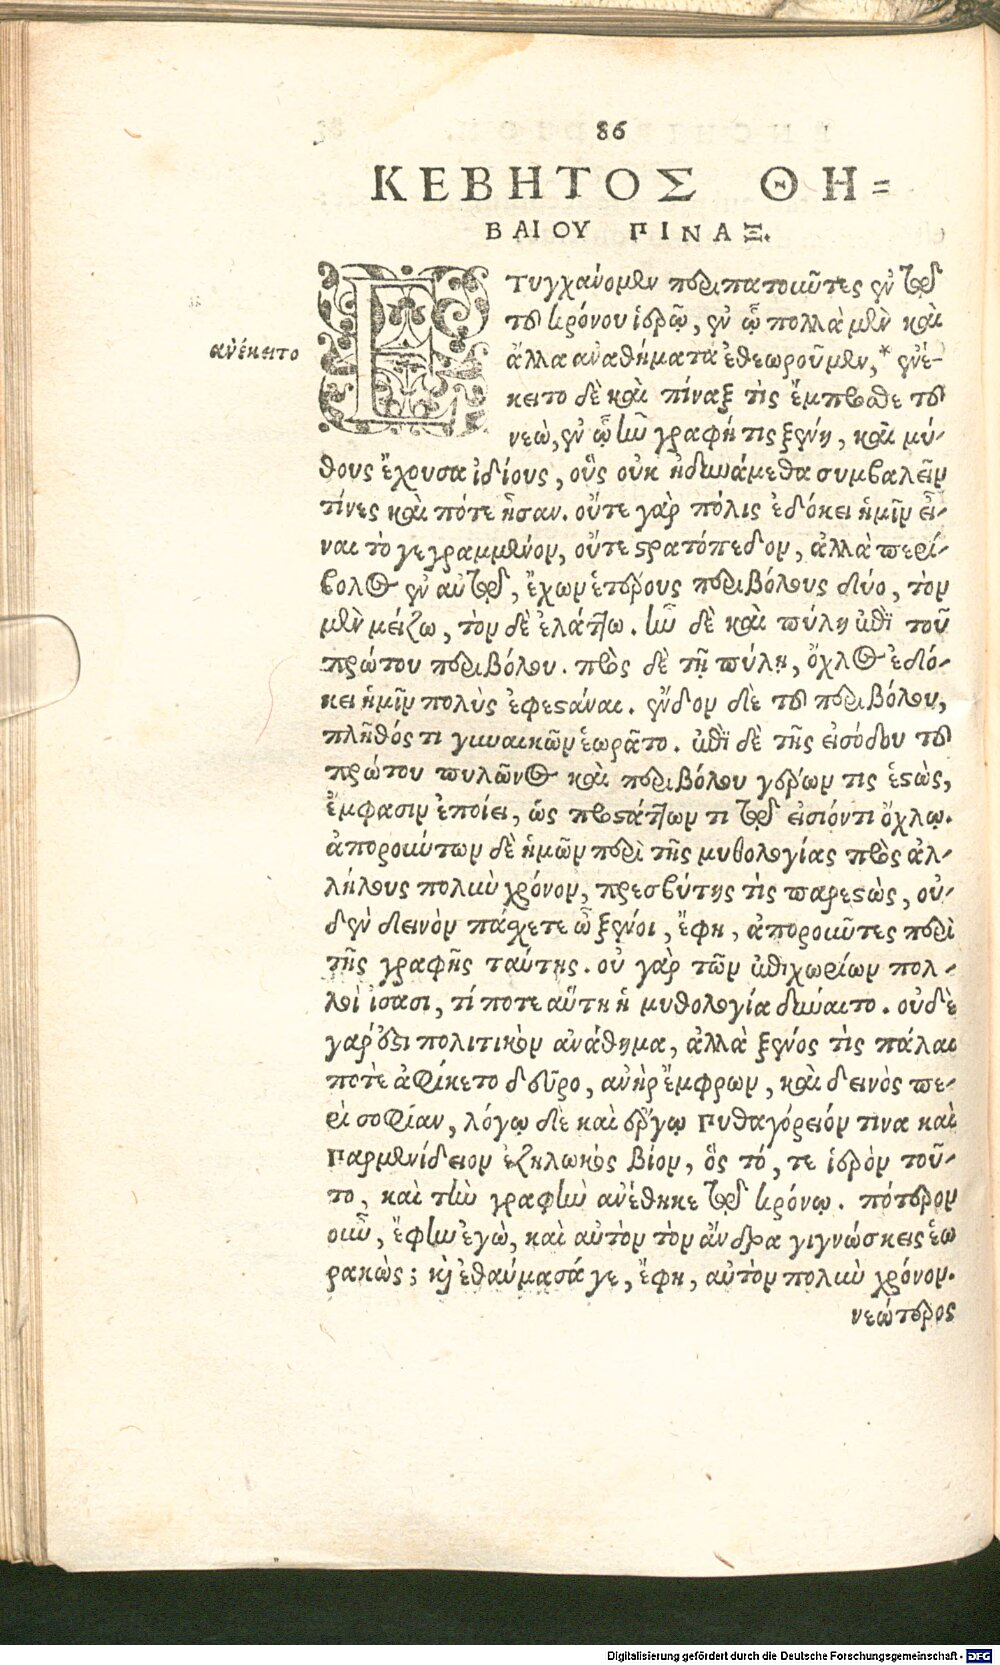 86
ΚΕΒΗΤΟΣ ΘΗ=
ΒΑΙΟΥ ΠΙΝΑΞ.
ἀνέκειτο
ΕΤυγχάνομεν περιπατοῦντες ἐν τῷ
τοῦ κρόνου ἱερῷ, ἐν ᾧ πολλὰ μὲν καὶ
ἄλλα ἀναθήματα ἐθεωροῦμεν,* ἐνέ-
κειτο δὲ καὶ πίναξ τὶς ἔμπροσθε τοῦ
νεώ, ἐν ᾧ ἦν γραφή τις ξένη, καὶ μύ-
θους ἔχουσα ἰδίους, οὓς οὐκ ἠδυνάμεθα συμβαλεῖν
τίνες καὶ πότε ἦσαν. οὔτε γὰρ πόλις ἐδόκει ἡμῖν εἶ-
ναι τὸ γεγραμμένον, οὔτε στρατόπεδον, ἀλλὰ περί-
βολος ἐν αὑτῷ, ἔχων ἑτέρους περιβόλους δύο, τὸν
μὲν μείζω, τὸν δὲ ἐλάττω. ἦν δὲ καὶ πύλη ἐπὶ τοῦ
πρώτου περιβόλου. πρὸς δὲ τῇ πύλῃ, ὄχλος ἐδό-
κει ἡμῖν πολὺς ἐφεστάναι. ἔνδον δὲ τοῦ περιβόλου,
πλῆθός τι γυναικῶν ἑωρᾶτο. ἐπὶ δὲ τῆς εἰσόδου τοῦ
πρώτου πυλῶνος καὶ περιβόλου γέρων τις ἑστὼς,
ἔμφασιν ἐποίει, ὡς προστάττων τι τῷ εἰσιόντι ὄχλῳ.
ἀπορούντων δὲ ἡμῶν περὶ τῆς μυθολογίας πρὸς ἀλ-
λήλους πολὺν χρόνον, πρεσβύτης τὶς παρεστὼς, οὐ-
δὲν δεινὸν πάσχετε ὦ ξένοι, ἔφη, ἀποροῦντες περὶ
τῆς γραφῆς ταύτης. οὐ γὰρ τῶν ἐπιχωρίων πολ-
λοὶ ἴσασι, τί ποτε αὕτη ἡ μυθολογία δύναιτο. οὐδὲ
γάρ ἐστι πολιτικὸν ἀνάθημα, ἀλλὰ ξένος τὶς πάλαι
ποτὲ ἀφίκετο δεῦρο, ἀνὴρ ἔμφρων, καὶ δεινὸς πε-
ρὶ σοφίαν, λόγῳ δὲ καὶ ἔργῳ Πυθαγόρειόν τινα καὶ
Παρμενίδειον ἐζηλωκὼς βίον, ὅς τό, τε ἱερὸν τοῦ-
το, καὶ τὴν γραφὴν ἀνέθηκε τῷ κρόνῳ. πότερον
οὖν, ἔφην ἐγὼ, καὶ αὐτὸν τὸν ἄνδρα γιγνώσκεις ἑω
ρακὼς; καὶ ἐθαύμασά γε, ἔφη, αὐτὸν πολὺν χρόνον.
νεώτερος
Digitalisierung gefördert durch die Deutsche Forschungsgemeinschaft - DFG